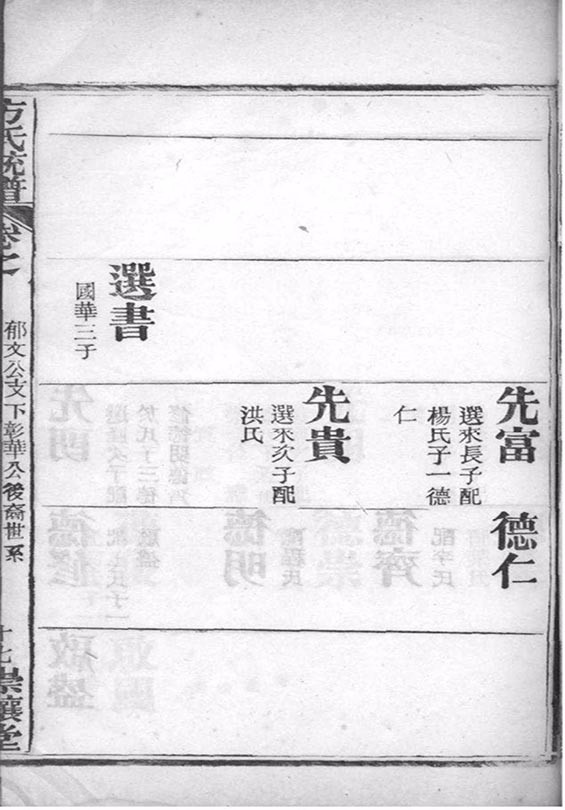 先富
選來長子配
楊氏子一德
仁
德仁
先貴
選來次子配
洪氏
選書
國華三子
方氏統譜
卷之
郁文公支下彰華公後裔世系
十七
崇讓堂